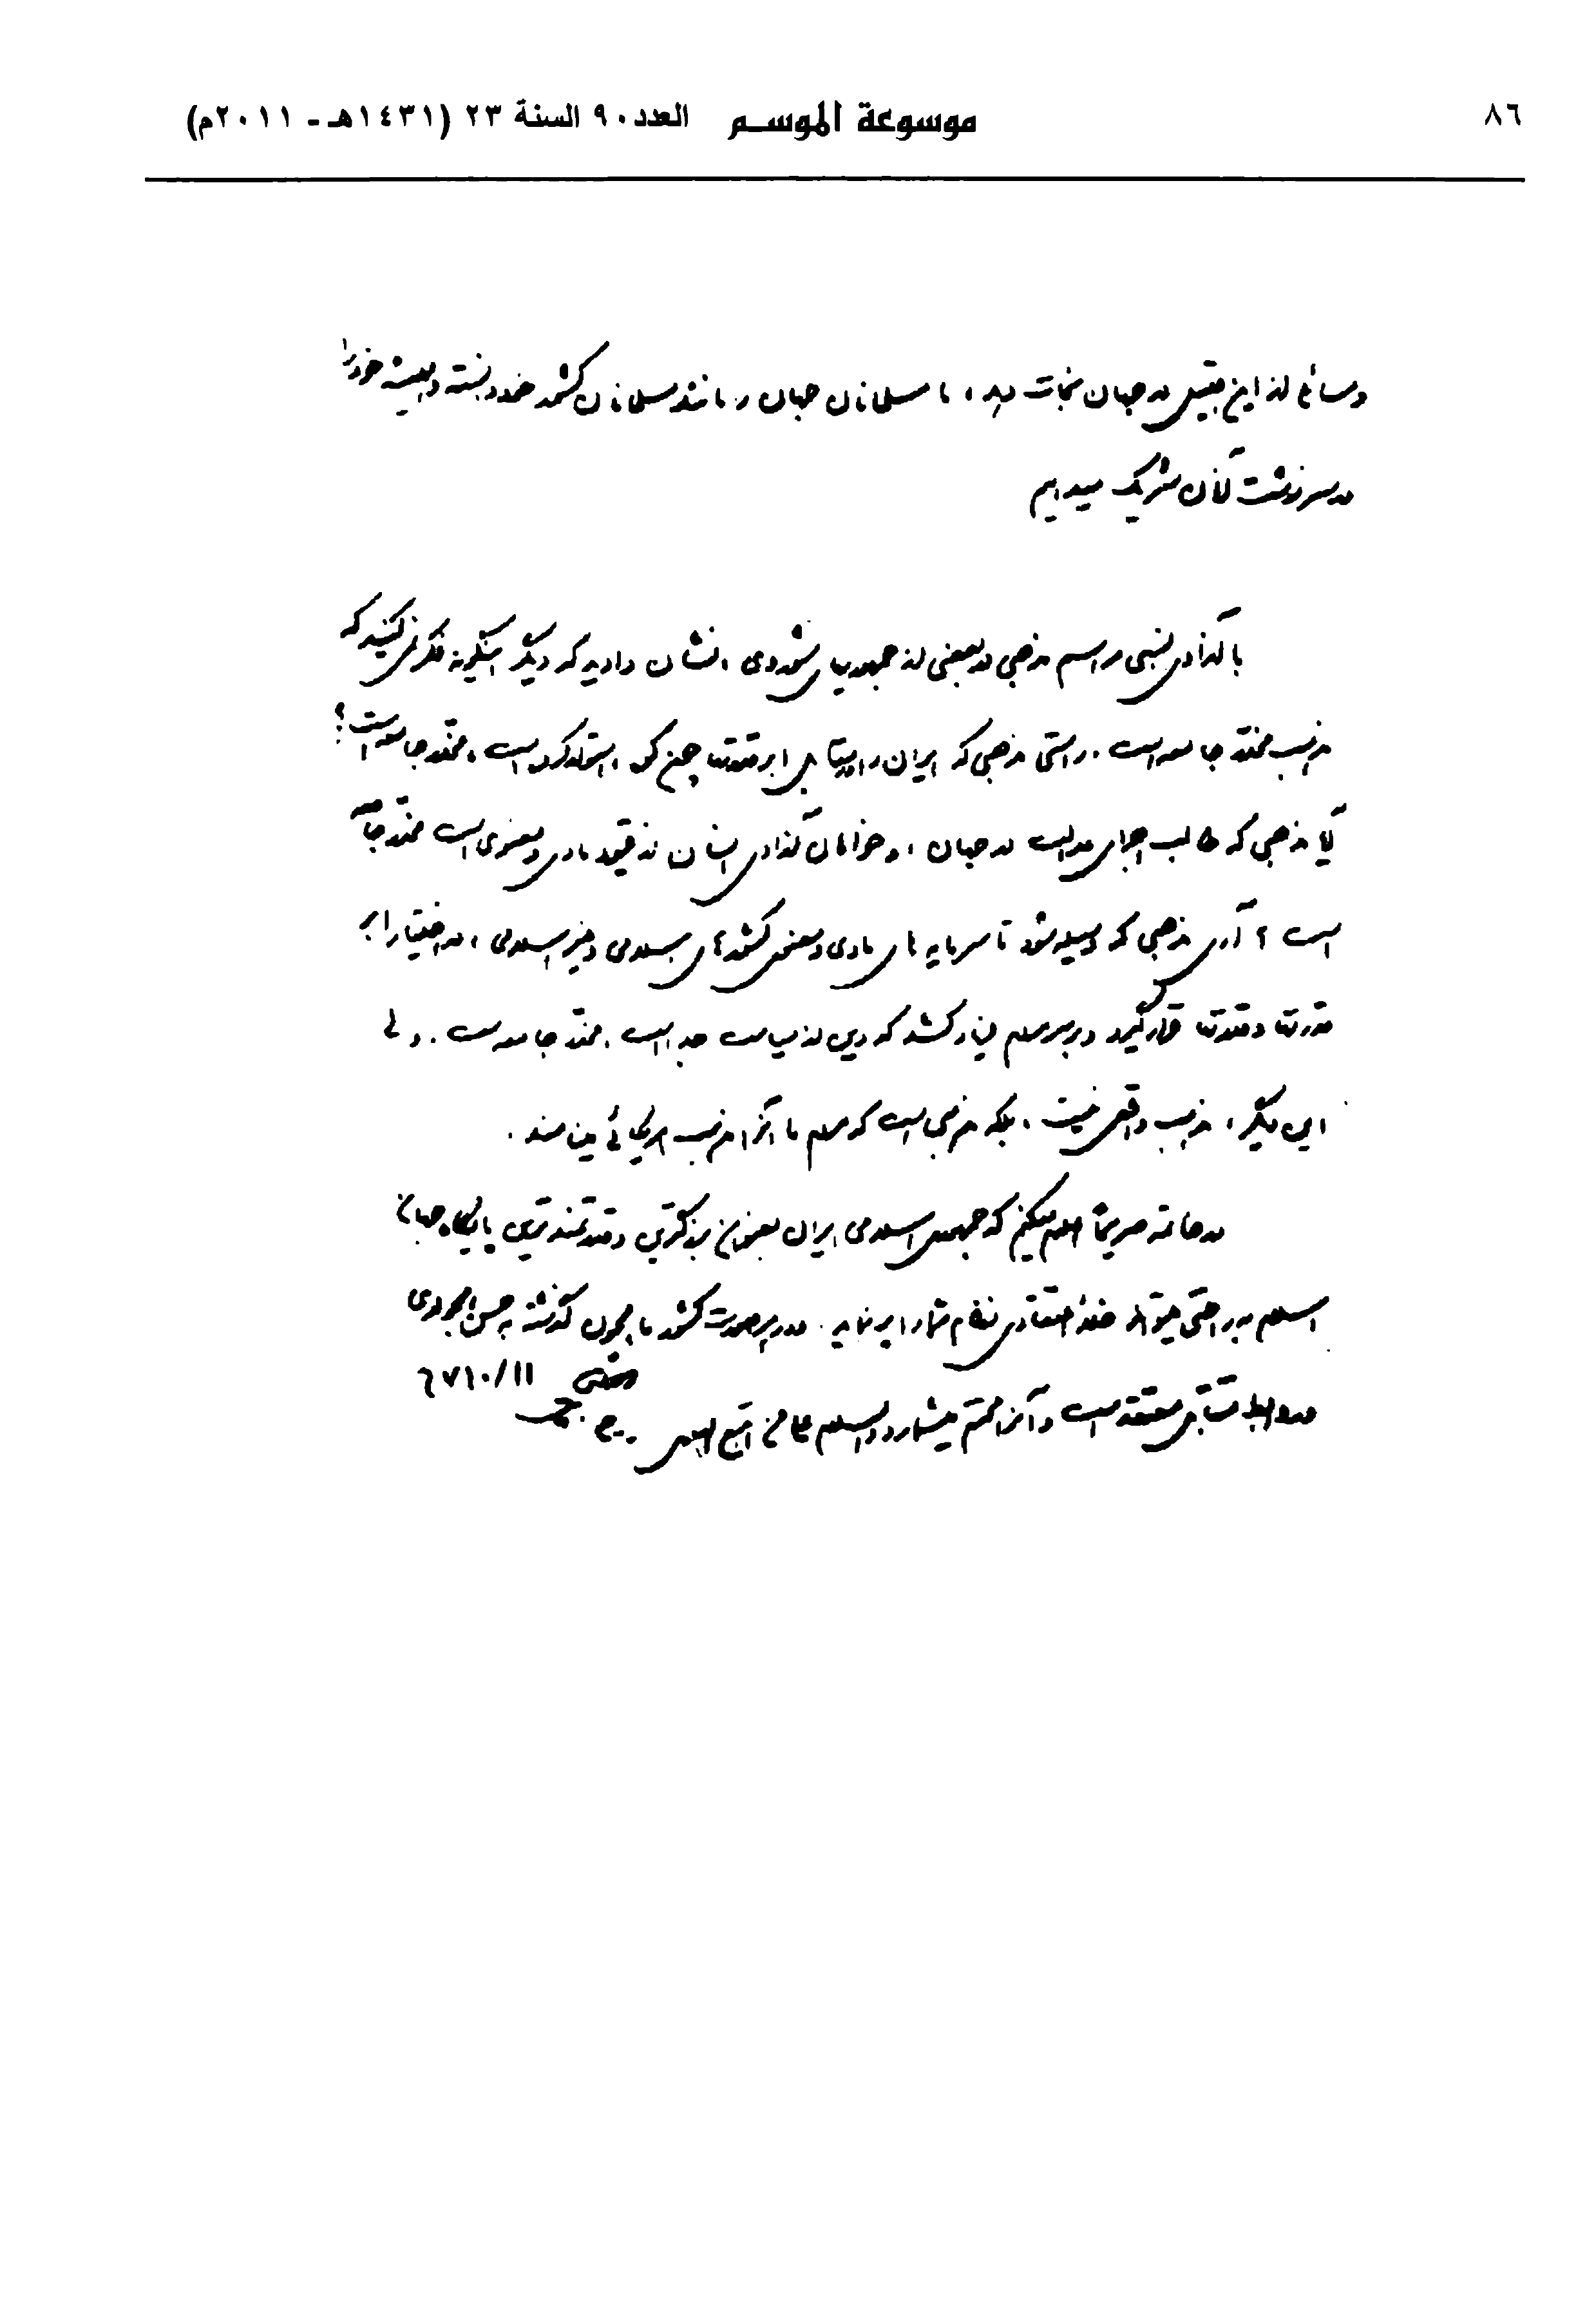 ٨٦
موسوعة الموسم العدد ٩٠ السنة ٢٣ (١٤٣١هـ - ٢٠١١م)
ومسائلی از این قبیل در جهان نجات دهد، ما مسلمانان جهان را مانند مسلمانان کشور خود دانسته و همیشه خود را
در سرنوشت آنان شریک میدانیم
با آزادی نسبی مراسم مذهبی در بعضی از جمهوریهای شوروی، نشان دادید که دیگر اینگونه فکر نمی‌کنید که
مذهب مخدر جامعه است. راستی مذهبی که ایران را در مقابل ابرقدرتها چون کوه استوار کرده است، مخدر جامعه است؟
آیا مذهبی که طالب اجرای عدالت در جهان، و خواهان آزادی انسان از قیود مادی و معنوی است مخدر جامعه
است؟ آری مذهبی که وسیله شود تا سرمایه های مادی و معنوی کشورهای اسلامی و غیر اسلامی، در اختیار ابر
قدرتها و قدرتها قرار گیرد و بر سر مردم فریاد کشد که دین از سیاست جدا است، مخدر جامعه است. ولی
این دیگر، مذهب واقعی نیست، بلکه مذهبی است که مردم ما آنرا مذهب امریکائی مینامند.
در خاتمه صریحاً اعلام میکنم که جمهوری اسلامی ایران بعنوان بزرگترین و قدرتمندترین پایگاه جهان
اسلام به راحتی میتواند خلأ اعتقادی نظام شما را پر نماید. و در هر صورت کشور ما همچون گذشته به حسن همجواری
و روابط متقابل معتقد است و آنرا محترم میشمارد والسلام علی من اتبع الهدی
٦٧/١٠/١١